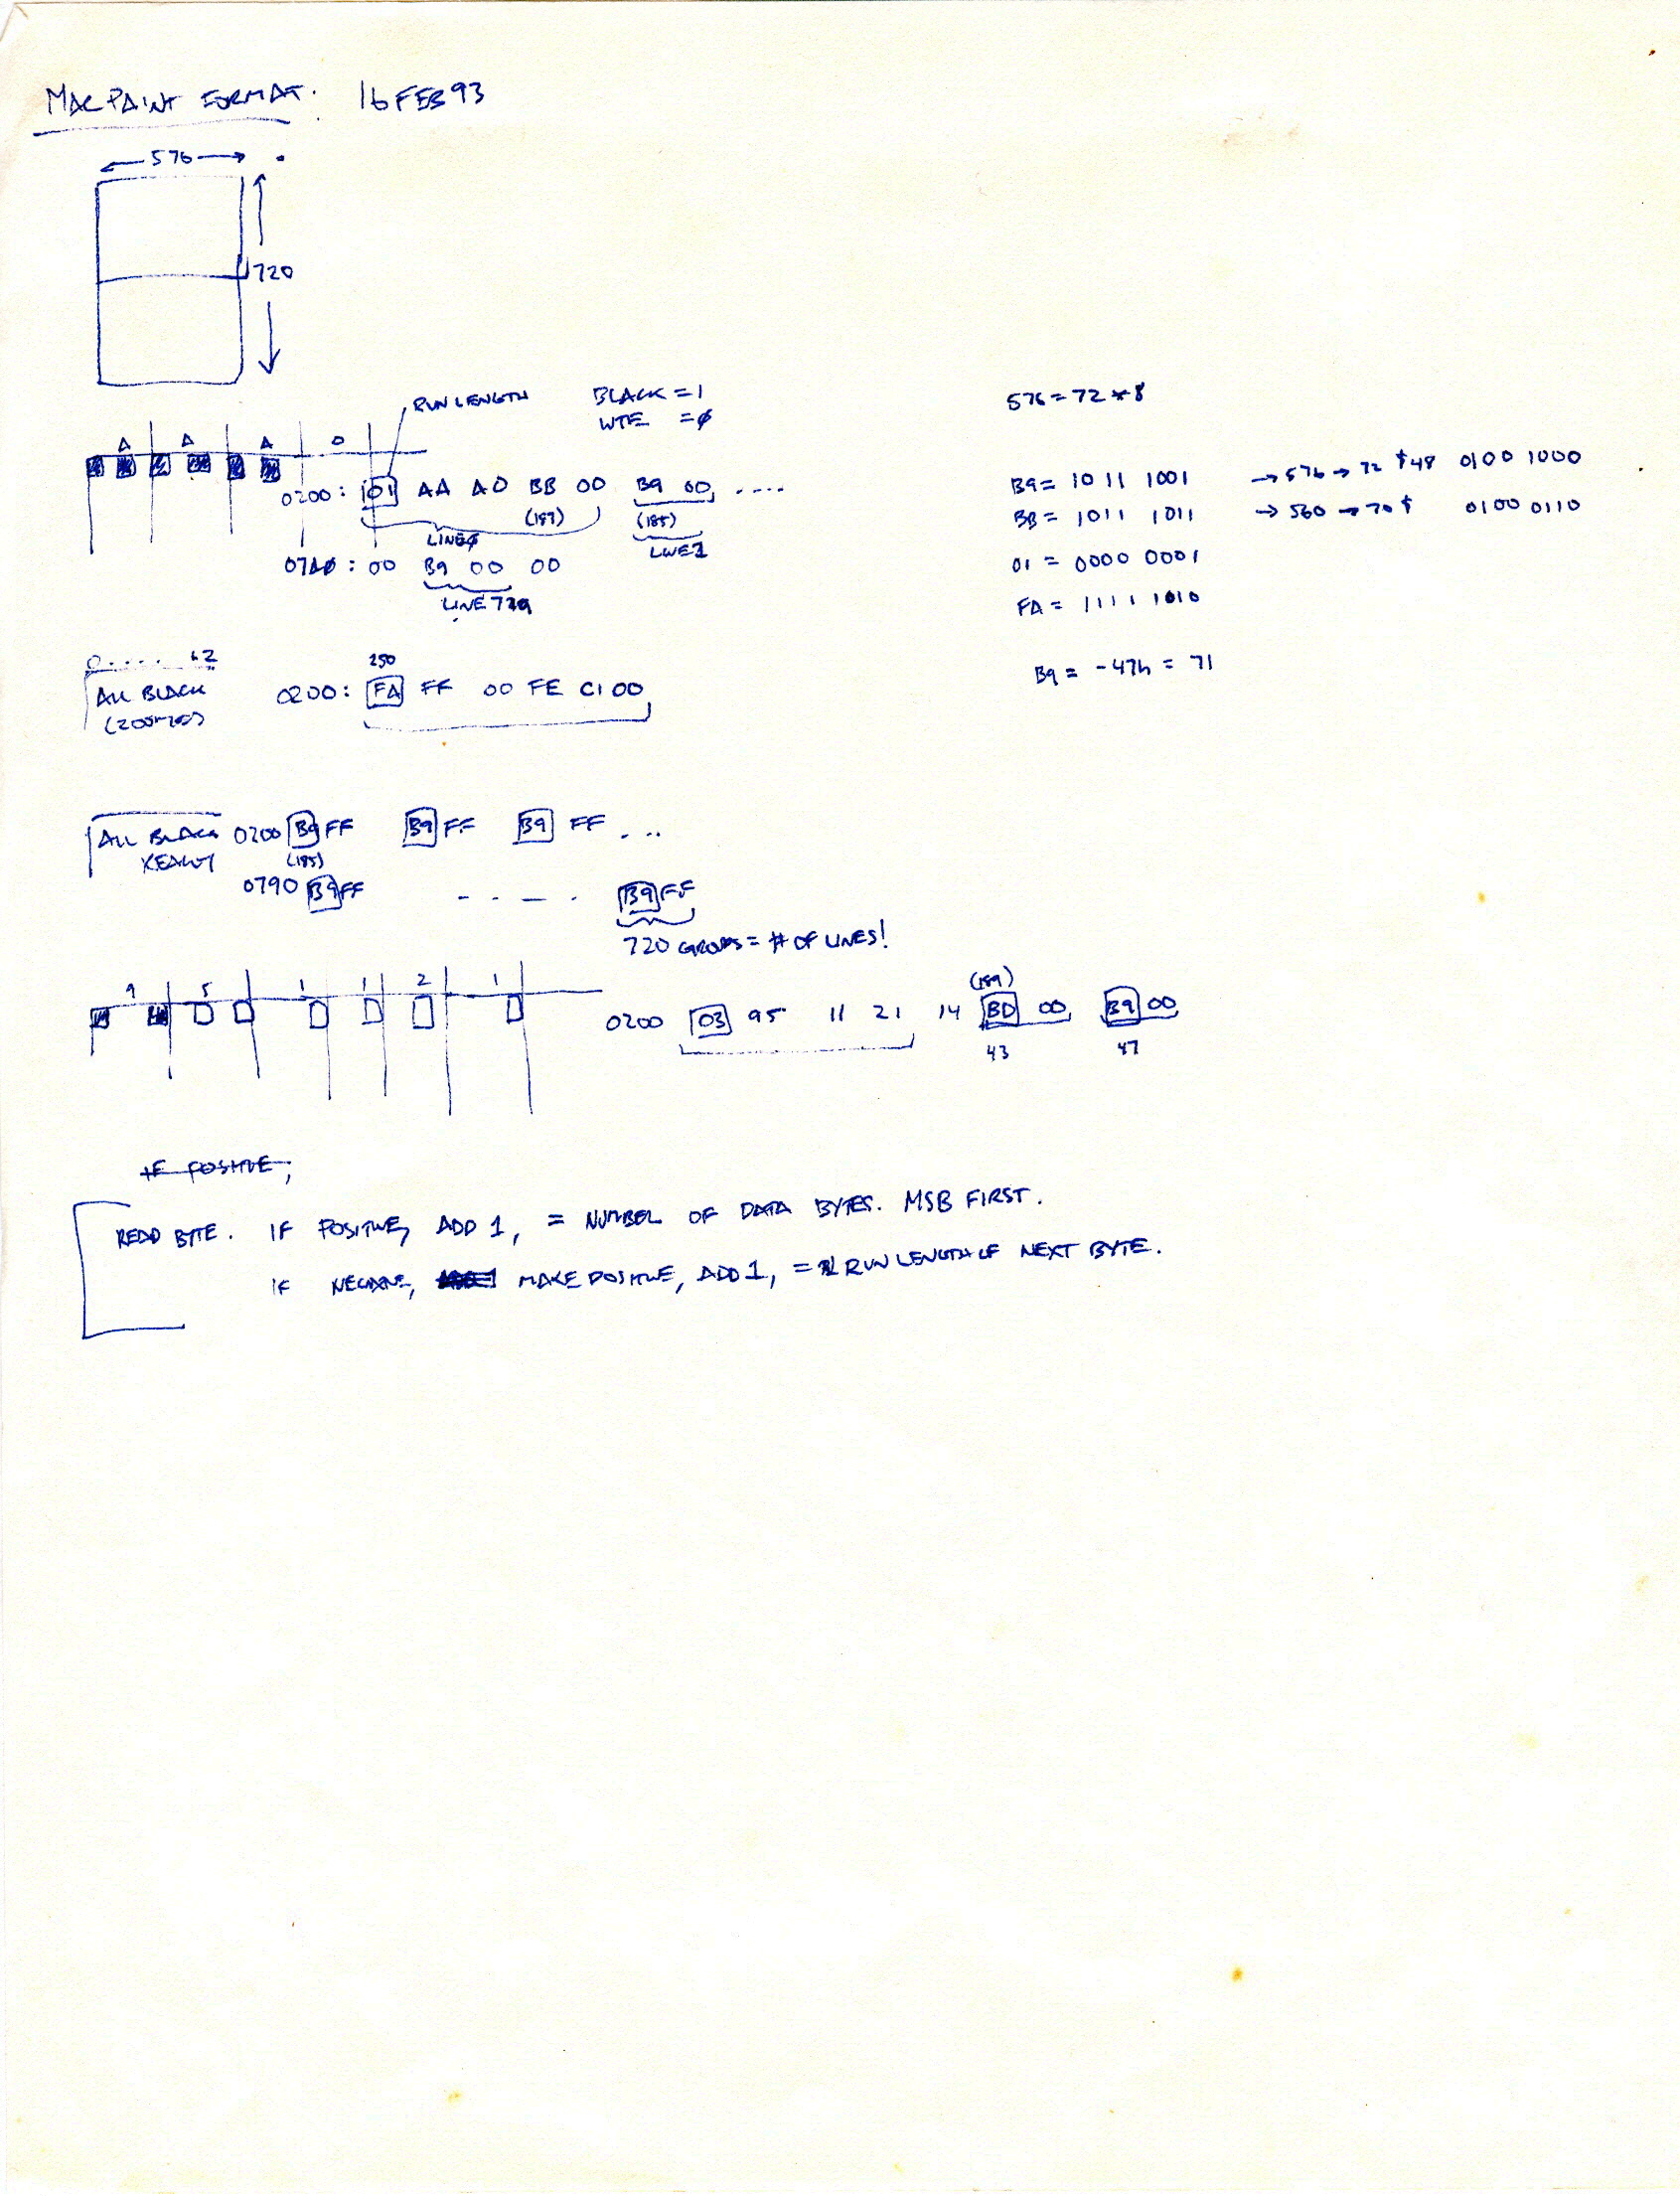 MAC PAINT FORMAT. 16 FEB 93
← 576 →
720
RUN LENGTH
BLACK = 1
WTE = ∅
576 = 72 * 8
A A A 0
0200: 01 AA A0 BB 00 B9 00, ....
(187) (185)
LINE∅ LINE1
07A∅: 00 B9 00 00
LINE 719
B9 = 1011 1001 → 576 → 72 $48 0100 1000
BB = 1011 1011 → 560 → 70 $ 0100 0110
01 = 0000 0001
FA = 1111 1010
B9 = -47h = 71
0..... 62
ALL BLACK
(ZOOMED)
250
0200: FA FF 00 FE C1 00
ALL BLACK
REALLY
0200 B9 FF B9 FF B9 FF ...
(185)
0790 B9 FF - . - . B9 FF
720 GROUPS = # OF LINES!
9 5 1 1 2 1
(189)
0200 03 95 11 21 14 BD 00, B9 00
43 47
IF POSITIVE,
READ BYTE. IF POSITIVE, ADD 1, = NUMBER OF DATA BYTES. MSB FIRST.
IF NEGATIVE, MAKE POSITIVE, ADD 1, = RUN LENGTH OF NEXT BYTE.